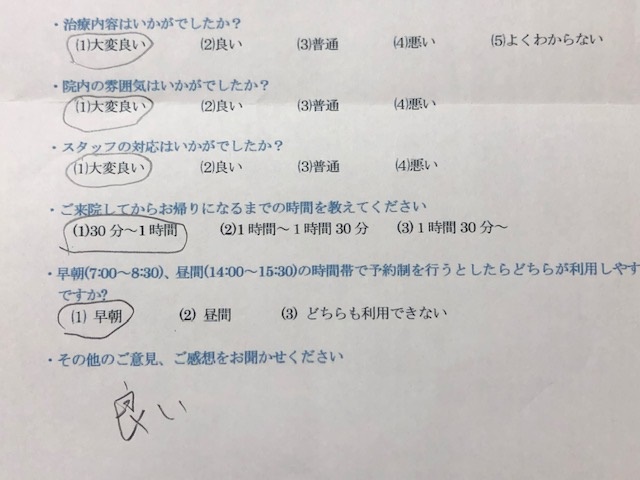 ・治療内容はいかがでしたか？
(1)大変良い (2)良い (3)普通 (4)悪い (5)よくわからない
・院内の雰囲気はいかがでしたか？
(1)大変良い (2)良い (3)普通 (4)悪い
・スタッフの対応はいかがでしたか？
(1)大変良い (2)良い (3)普通 (4)悪い
・ご来院してからお帰りになるまでの時間を教えてください
(1)30分～1時間 (2)1時間～1時間30分 (3)1時間30分～
・早朝(7:00～8:30)、昼間(14:00～15:30)の時間帯で予約制を行うとしたらどちらが利用しやす
ですか?
(1) 早朝 (2) 昼間 (3) どちらも利用できない
・その他のご意見、ご感想をお聞かせください
良い